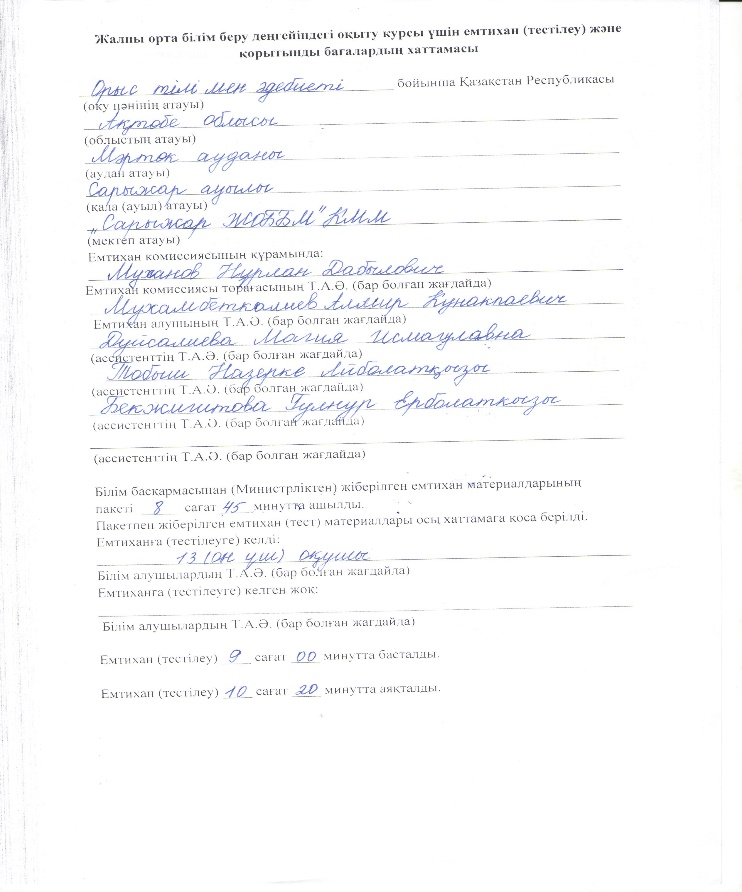 Жалпы орта білім беру деңгейіндегі оқыту курсы үшін емтихан (тестілеу) және
қорытынды бағалардың хаттамасы
Орыс тілі мен әдебиеті бойынша Қазақстан Республикасы
(оқу пәнінің атауы)
Ақтөбе облысы
(облыстың атауы)
Мәртөк ауданы
(аудан атауы)
Сарыжар ауылы
(қала (ауыл) атауы)
„Сарыжар ЖОББМ" КММ
(мектеп атауы)
Емтихан комиссиясының құрамында:
Муханов Нурлан Дабылович
Емтихан комиссиясы төрағасының Т.А.Ә. (бар болған жағдайда)
Мухамбеткалиев Алмир Кунакпаевич
Емтихан алушының Т.А.Ә. (бар болған жағдайда)
Дуйсалиева Магия Исмагуловна
(ассистенттің Т.А.Ә. (бар болған жағдайда)
Тобыш Назерке Айболатқызы
(ассистенттің Т.А.Ә. (бар болған жағдайда)
Бекжигитова Гулнур Ерболатқызы
(ассистенттің Т.А.Ә. (бар болған жағдайда)
(ассистенттің Т.А.Ә. (бар болған жағдайда)
Білім басқармасынан (Министрліктен) жіберілген емтихан материалдарының
пакеті 8 сағат 45 минутта ашылды.
Пакетпен жіберілген емтихан (тест) материалдары осы хаттамаға қоса берілді.
Емтиханға (тестілеуге) келді:
13 (он үш) оқушы
Білім алушылардың Т.А.Ә. (бар болған жағдайда)
Емтиханға (тестілеуге) келген жоқ:
Білім алушылардың Т.А.Ә. (бар болған жағдайда)
Емтихан (тестілеу) 9 сағат 00 минутта басталды.
Емтихан (тестілеу) 10 сағат 20 минутта аяқталды.